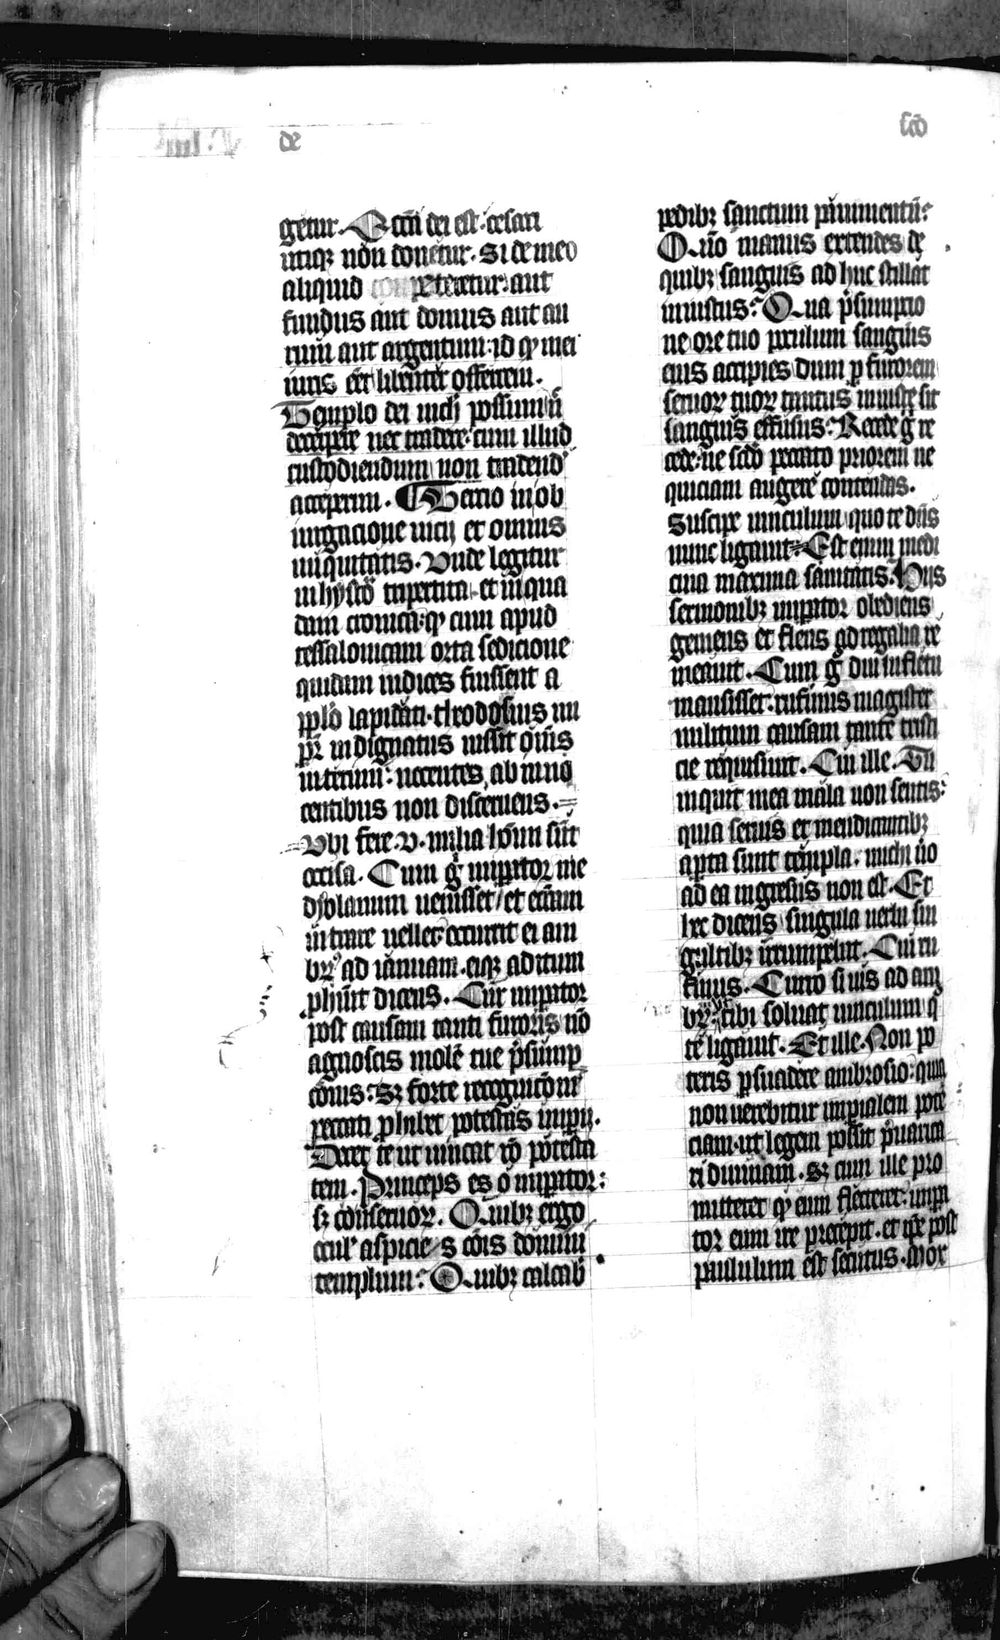 de
scd̄
getur. Ecc̄īī dei est. cesari
utiqȝ non donetur. Si de meo
aliquid competeretur. aut
fundus aut domus aut au
rum aut argentum. id qd mei
iuris eēt libenter offerrem.
Templo dei nichil possum ūl
decerpere nec tradere. cum illud
custodiendum non tradend̄
acceperim. ¶ Tercio in ob
iurgacione uicij et omnis
iniquitatis. Vnde legitur
in hystō tripertita. et in qua
dam cronica. qd cum apud
tessalonicam orta sedicione
quidam iudices fuissent a
ppl̄o lapidati. theodosius im
pr̄ indignatus iussit om̄s
interimi: nocentes ab inno
centibus non discernens.
Vbi fere .v. milia hoīum sūt
occisa. Cum gͦ imperator me
dyolanum uenisset / et etiam
intrare uellet occurrit ei am
br̄ ad ianuam. eiqȝ aditum
phibuit dicens. Cur imperator
post causam tanti furoris nō
agnoscis molē tue p̄sump
cionis: Sȝ forte recognicionē
peccati phibet potestas imperij.
Decet te ut uincat ro potesta
tem. Princeps es o imperator:
sȝ conseruoꝝ. Quibȝ ergo
ocul̄ aspicies cois domini
templum: Quibȝ calcab̄
pedibȝ sanctum pauimentū:
Quō manus extendes de
quibȝ sanguis ad huc stillat
iniustus: Qua p̄sumptio
ne ore tuo poculum sangūis
eius accipies dum p furorem
sermoꝝ tuoꝝ tantus iniuste sit
sanguis effusus: Recede gͦ re
cede: ne scd̄o peccato priorem ne
quiciam augere contendas.
Suscipe uinculum quo te dn̄s
nunc ligauit. Est enim medi
cina maxima sanitatis. Hijs
sermonibȝ imperator obediens
gemens et flens ad regalia re
meauit. Cum gͦ diu in fletu
mansisset: rufinus magister
militum causam tante tristi
cie requisiuit. Cui ille. Tu
inquit mea mala non sentis:
quia seruis et mendicantibȝ
aperta sunt templa. michi ūo
ad ea ingressus non est. Et
hec dicens singula uerba sin
gultibȝ irrumpebat. Cui ru
finus. Curro si uis ad am
br̄. ut tibi soluat uinculum qͦ
te ligauit. Et ille. Non po
teris psuadere ambrosio: quia
non uerebitur imperialem potē
ciam. ut legem possit p̄uarica
ri diuinam. Sȝ cum ille pro
mitteret qd eum flecteret: impera
tor eum ire precepit. et ipse post
paululum est secutus. Mox